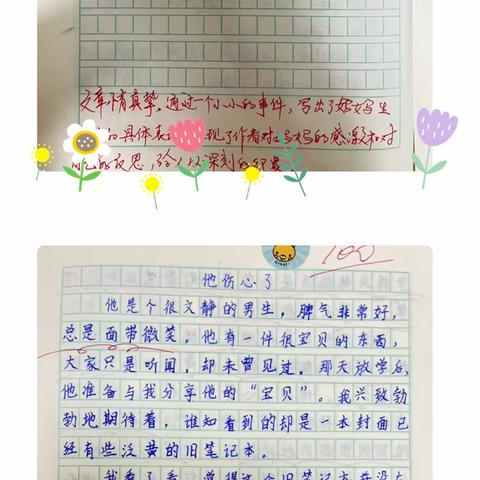 文章情真挚。通过一个小小的事件,写出了妈妈生
的具体表 现了作者对妈妈的感激和对
的反思,给人以深刻的印象
100
他伤心了
他是个很文静的男生,脾气非常好,
总是面带微笑。他有一件很宝贝的东西,
大家只是听闻,却未曾见过。那天放学后,
他准备与我分享他的“宝贝”。我兴致勃
勃地期待着,谁知看到的却是一本封面已
经有些泛黄的旧笔记本。
我看了看,觉得这个旧笔记本并没有